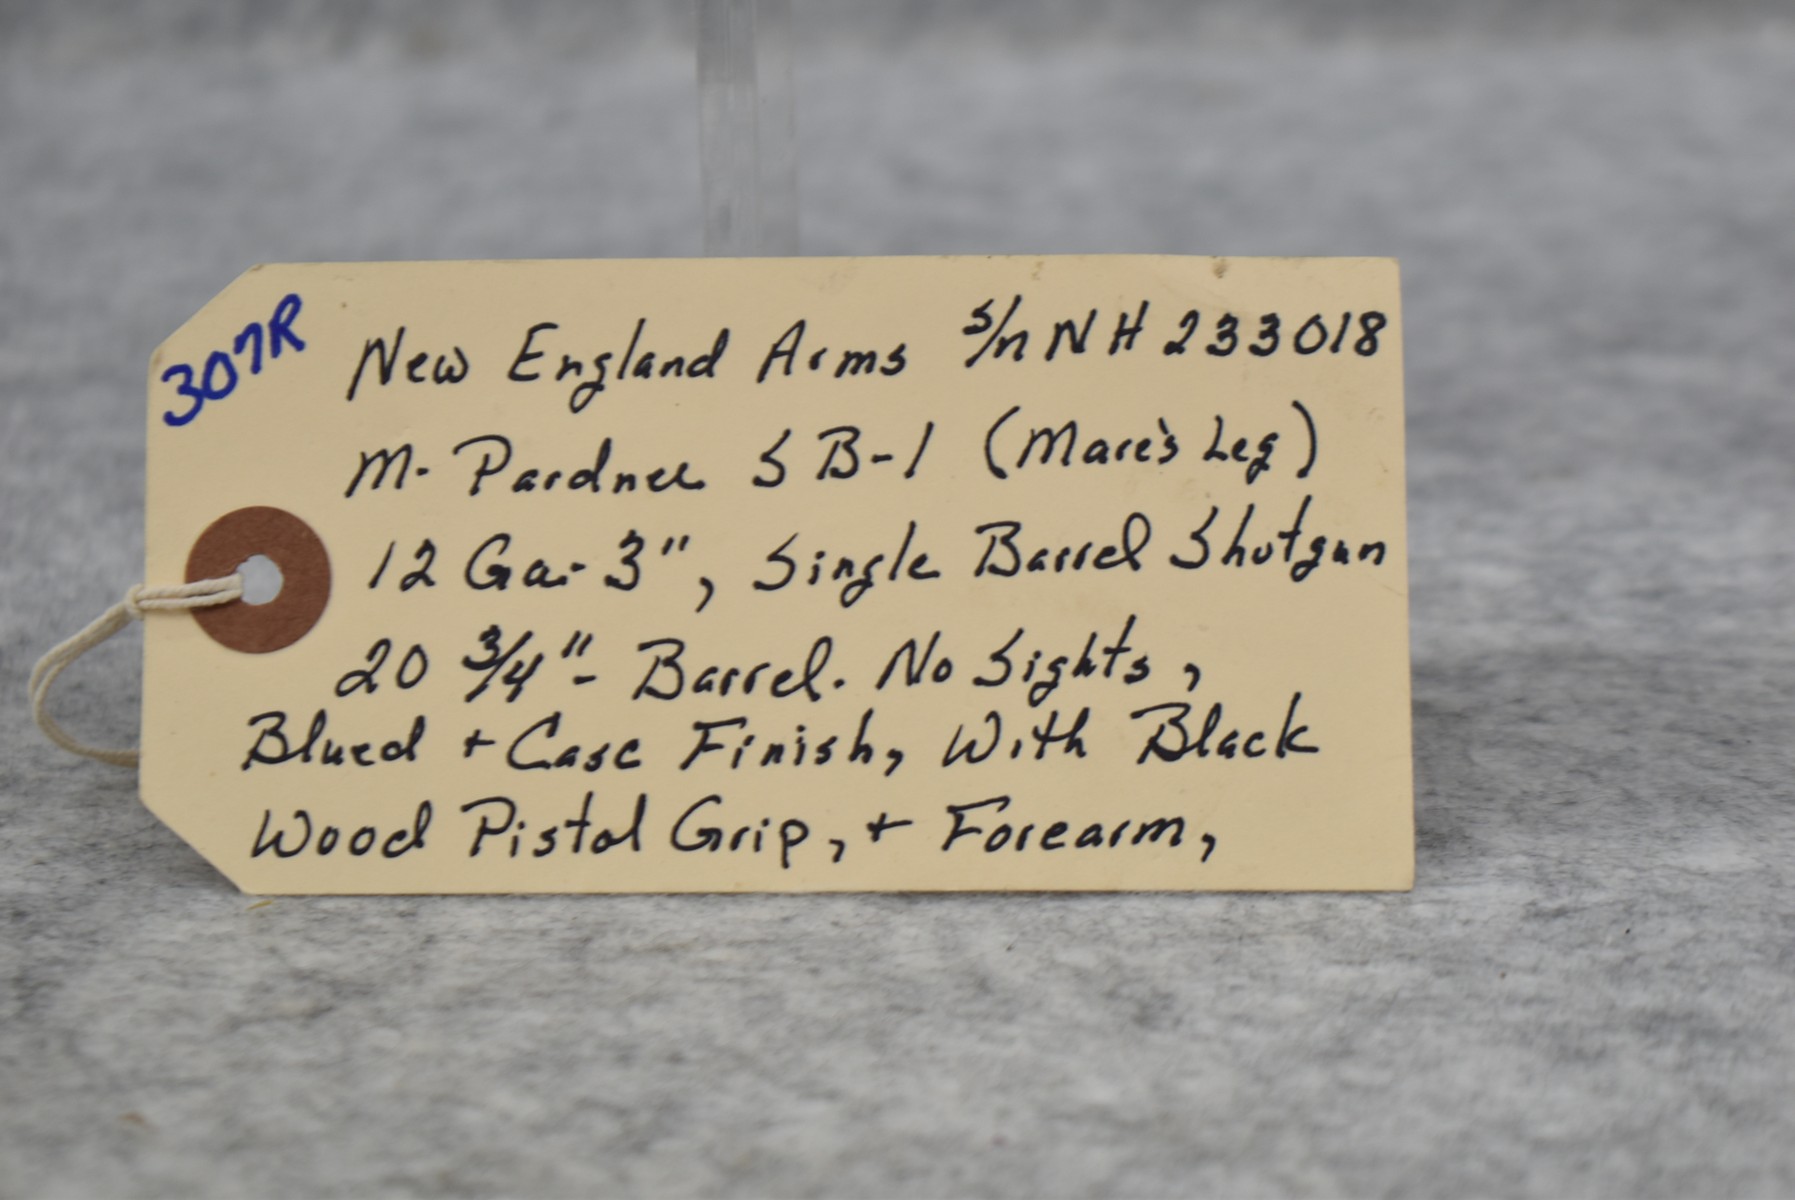 307R
New England Arms S/n NH 233018
M- Pardner SB-1 (Mare's Leg)
12 Ga- 3", Single Barrel Shotgun
20 3/4"- Barrel. No Sights,
Blued + Case Finish, With Black
Wood Pistol Grip, + Forearm,